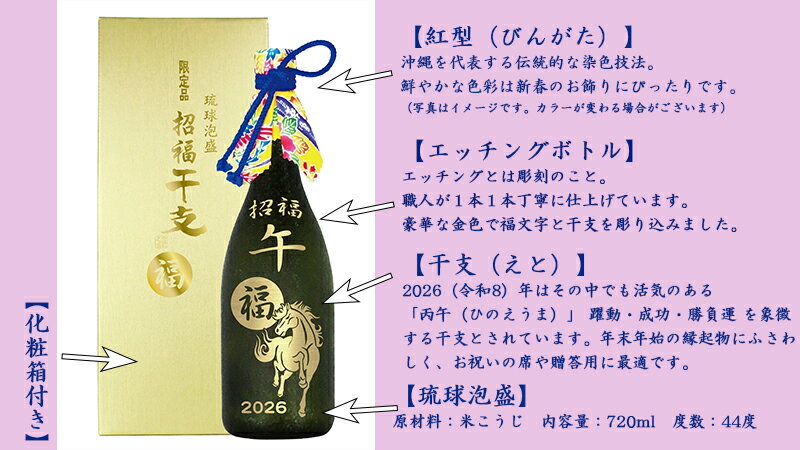 【紅型（びんがた）】
沖縄を代表する伝統的な染色技法。
鮮やかな色彩は新春のお飾りにぴったりです。
（写真はイメージです。カラーが変わる場合がございます）
【エッチングボトル】
エッチングとは彫刻のこと。
職人が１本１本丁寧に仕上げています。
豪華な金色で福文字と干支を彫り込みました。
【干支（えと）】
2026（令和8）年はその中でも活気のある
「丙午（ひのえうま）」 躍動・成功・勝負運 を象徴
する干支とされています。年末年始の縁起物にふさわ
しく、お祝いの席や贈答用に最適です。
【琉球泡盛】
原材料：米こうじ　内容量：720ml　度数：44度
【化粧箱付き】
限定品
琉球泡盛
招福干支
福
招福
午
福
2026